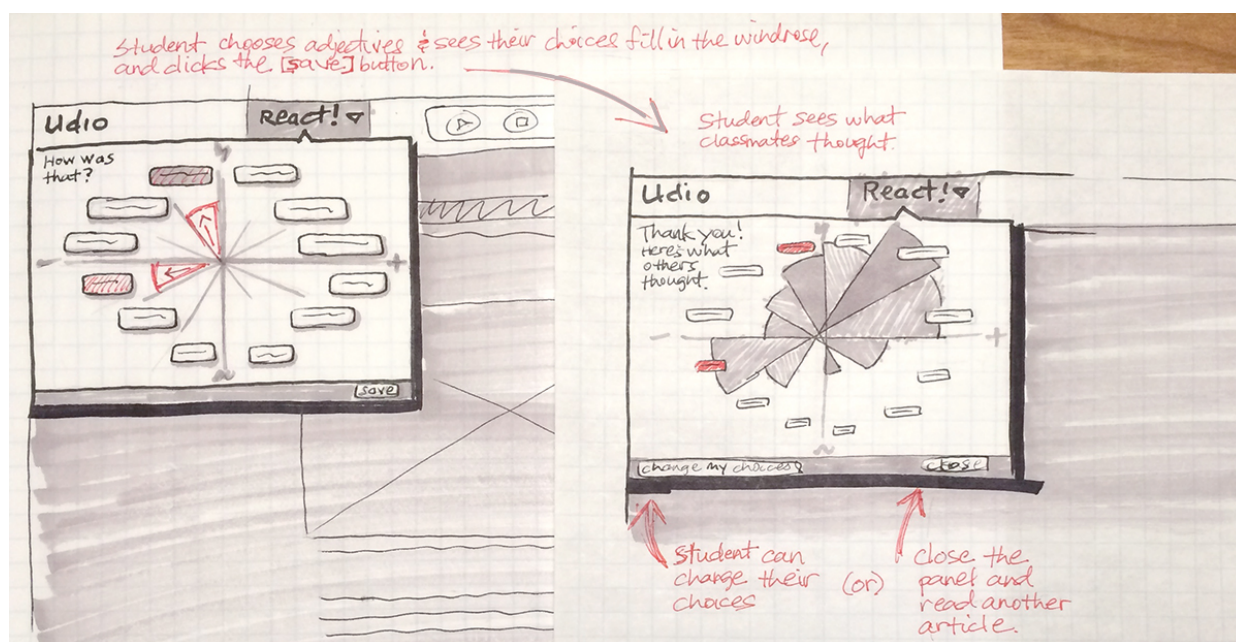 Student chooses adjectives & sees their choices fill in the windrose,
and clicks the [save] button.
Udio
React!
How was
that?
y
-
+
~
save
Student sees what
classmates thought.
Udio
React!
Thank you!
Here's what
others
thought.
y
-
+
~
change my choices
close
Student can
change their
choices
(or)
close the
panel and
read another
article.